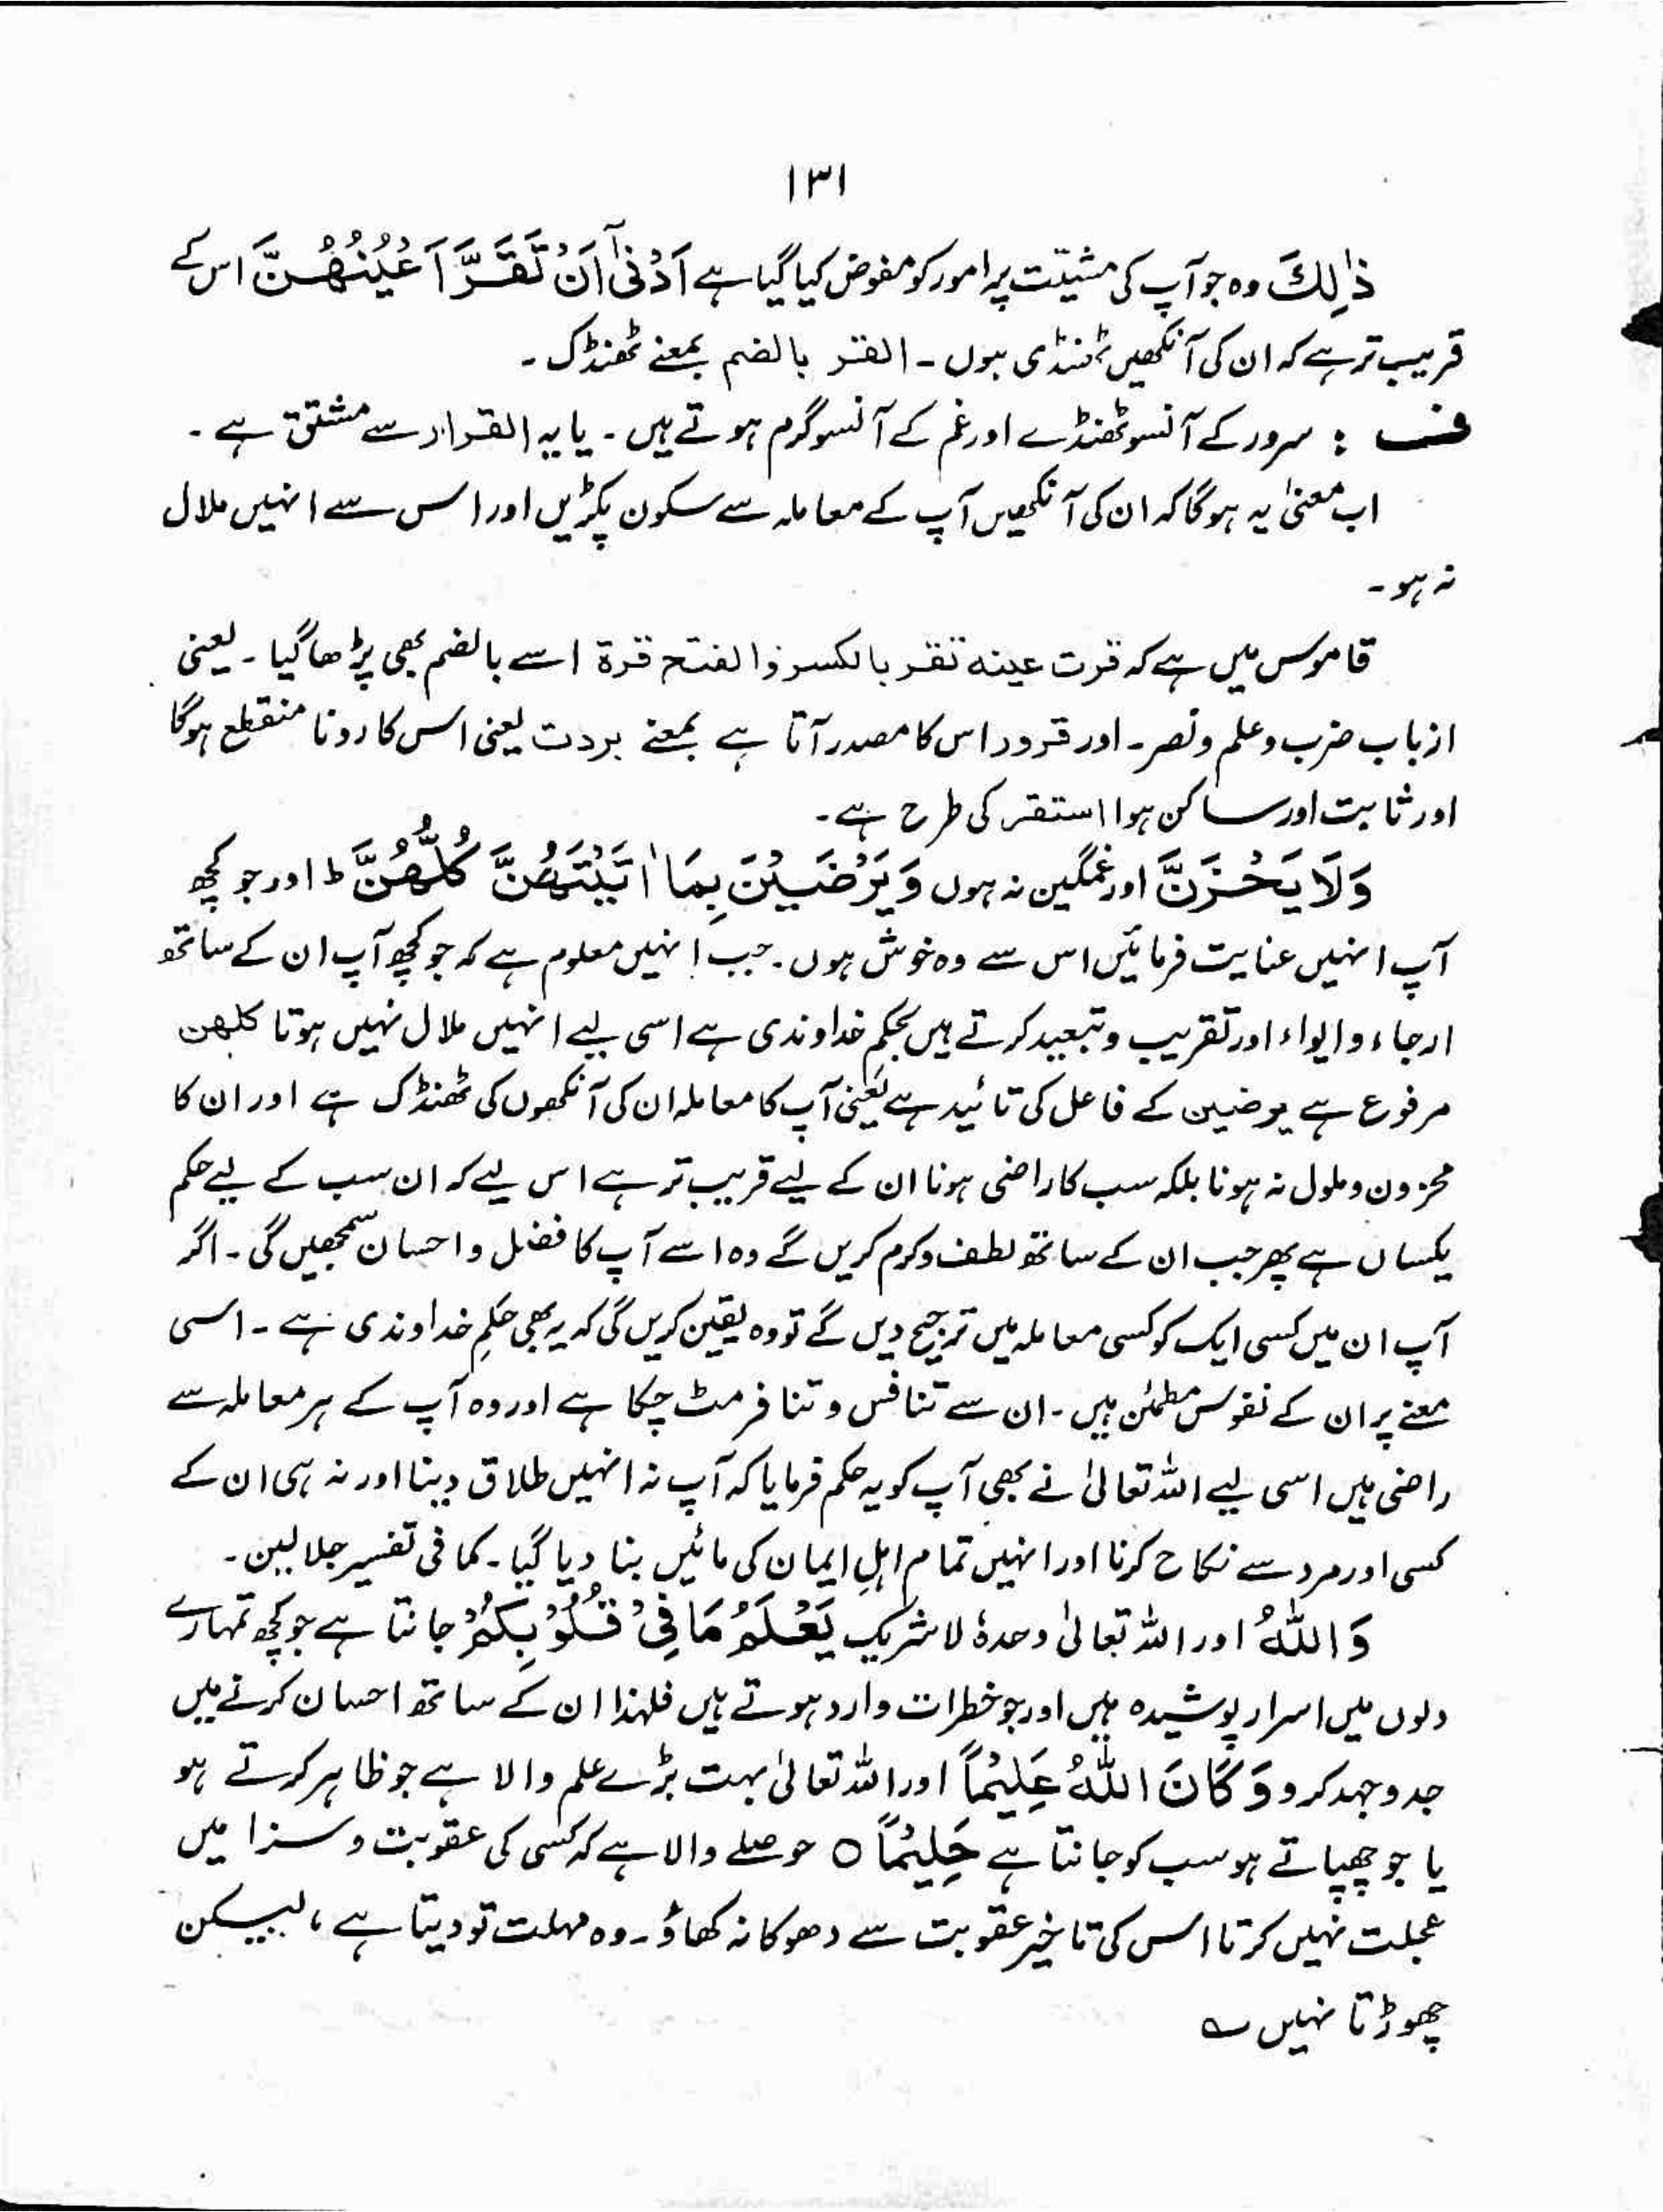 ۱۳۱
ذٰلِكَ وہ جو آپ کی مشیّت پر امور کو مفوض کیا گیا ہے اَدْنٰٓى اَنْ تَقَرَّ اَعْيُنُهُنَّ اس کے
قریب تر ہے کہ ان کی آنکھیں ٹھنڈی ہوں ۔ القر بالضم بمعنے ٹھنڈک ۔
ف : سرور کے آنسو ٹھنڈے اور غم کے آنسو گرم ہوتے ہیں ۔ یا یہ القرار سے مشتق ہے ۔
اب معنیٰ یہ ہوگا کہ ان کی آنکھیں آپ کے معاملہ سے سکون پکڑیں اور اس سے انہیں ملال
نہ ہو ۔
قاموس میں ہے کہ قرت عینہ تقر بالکسر والفتح قرة اسے بالضم بھی پڑھا گیا ۔ یعنی
از باب ضرب و علم و نصر ۔ اور قرور اس کا مصدر آتا ہے بمعنے بردت یعنی اس کا رونا منقطع ہوگا
اور ثابت اور ساکن ہوا استقر کی طرح ہے ۔
وَلَا يَحْزَنَّ اور غمگین نہ ہوں وَيَرْضَيْنَ بِمَا اٰتَيْتَهُنَّ كُلُّهُنَّ ط اور جو کچھ
آپ انہیں عنایت فرمائیں اس سے وہ خوش ہوں ۔ جب انہیں معلوم ہے کہ جو کچھ آپ ان کے ساتھ
ارجاء و ایواء اور تقریب و تبعید کرتے ہیں بحکم خداوندی ہے اسی لیے انہیں ملال نہیں ہوتا کلهن
مرفوع ہے یرضین کے فاعل کی تائید ہے یعنی آپ کا معاملہ ان کی آنکھوں کی ٹھنڈک ہے اور ان کا
محزون و ملول نہ ہونا بلکہ سب کا راضی ہونا ان کے لیے قریب تر ہے اس لیے کہ ان سب کے لیے حکم
یکساں ہے پھر جب ان کے ساتھ لطف و کرم کریں گے وہ اسے آپ کا فضل و احسان سمجھیں گی ۔ اگر
آپ ان میں کسی ایک کو کسی معاملہ میں ترجیح دیں گے تو وہ یقین کریں گی کہ یہ بھی حکمِ خداوندی ہے ۔ اسی
معنے پر ان کے نفوس مطمئن ہیں ۔ ان سے تنافس و تنافر مٹ چکا ہے اور وہ آپ کے ہر معاملہ سے
راضی ہیں اسی لیے اللہ تعالیٰ نے بھی آپ کو یہ حکم فرمایا کہ آپ نہ انہیں طلاق دینا اور نہ ہی ان کے
کسی اور مرد سے نکاح کرنا اور انہیں تمام اہلِ ایمان کی مائیں بنا دیا گیا ۔ کما فی تفسیر جلالین ۔
وَاللّٰهُ اور اللہ تعالیٰ وحدہٗ لاشریک يَعْلَمُ مَا فِىْ قُلُوْبِكُمْ جانتا ہے جو کچھ تمہارے
دلوں میں اسرار پوشیدہ ہیں اور جو خطرات وارد ہوتے ہیں فلہٰذا ان کے ساتھ احسان کرنے میں
جدوجہد کرو وَكَانَ اللّٰهُ عَلِيْمًا اور اللہ تعالیٰ بہت بڑے علم والا ہے جو ظاہر کرتے ہو
یا جو چھپاتے ہو سب کو جانتا ہے حَلِيْمًا ○ حوصلے والا ہے کہ کسی کی عقوبت و سزا میں
عجلت نہیں کرتا اس کی تاخیر عقوبت سے دھوکا نہ کھاؤ ۔ وہ مہلت تو دیتا ہے ، لیکن
چھوڑتا نہیں ؎